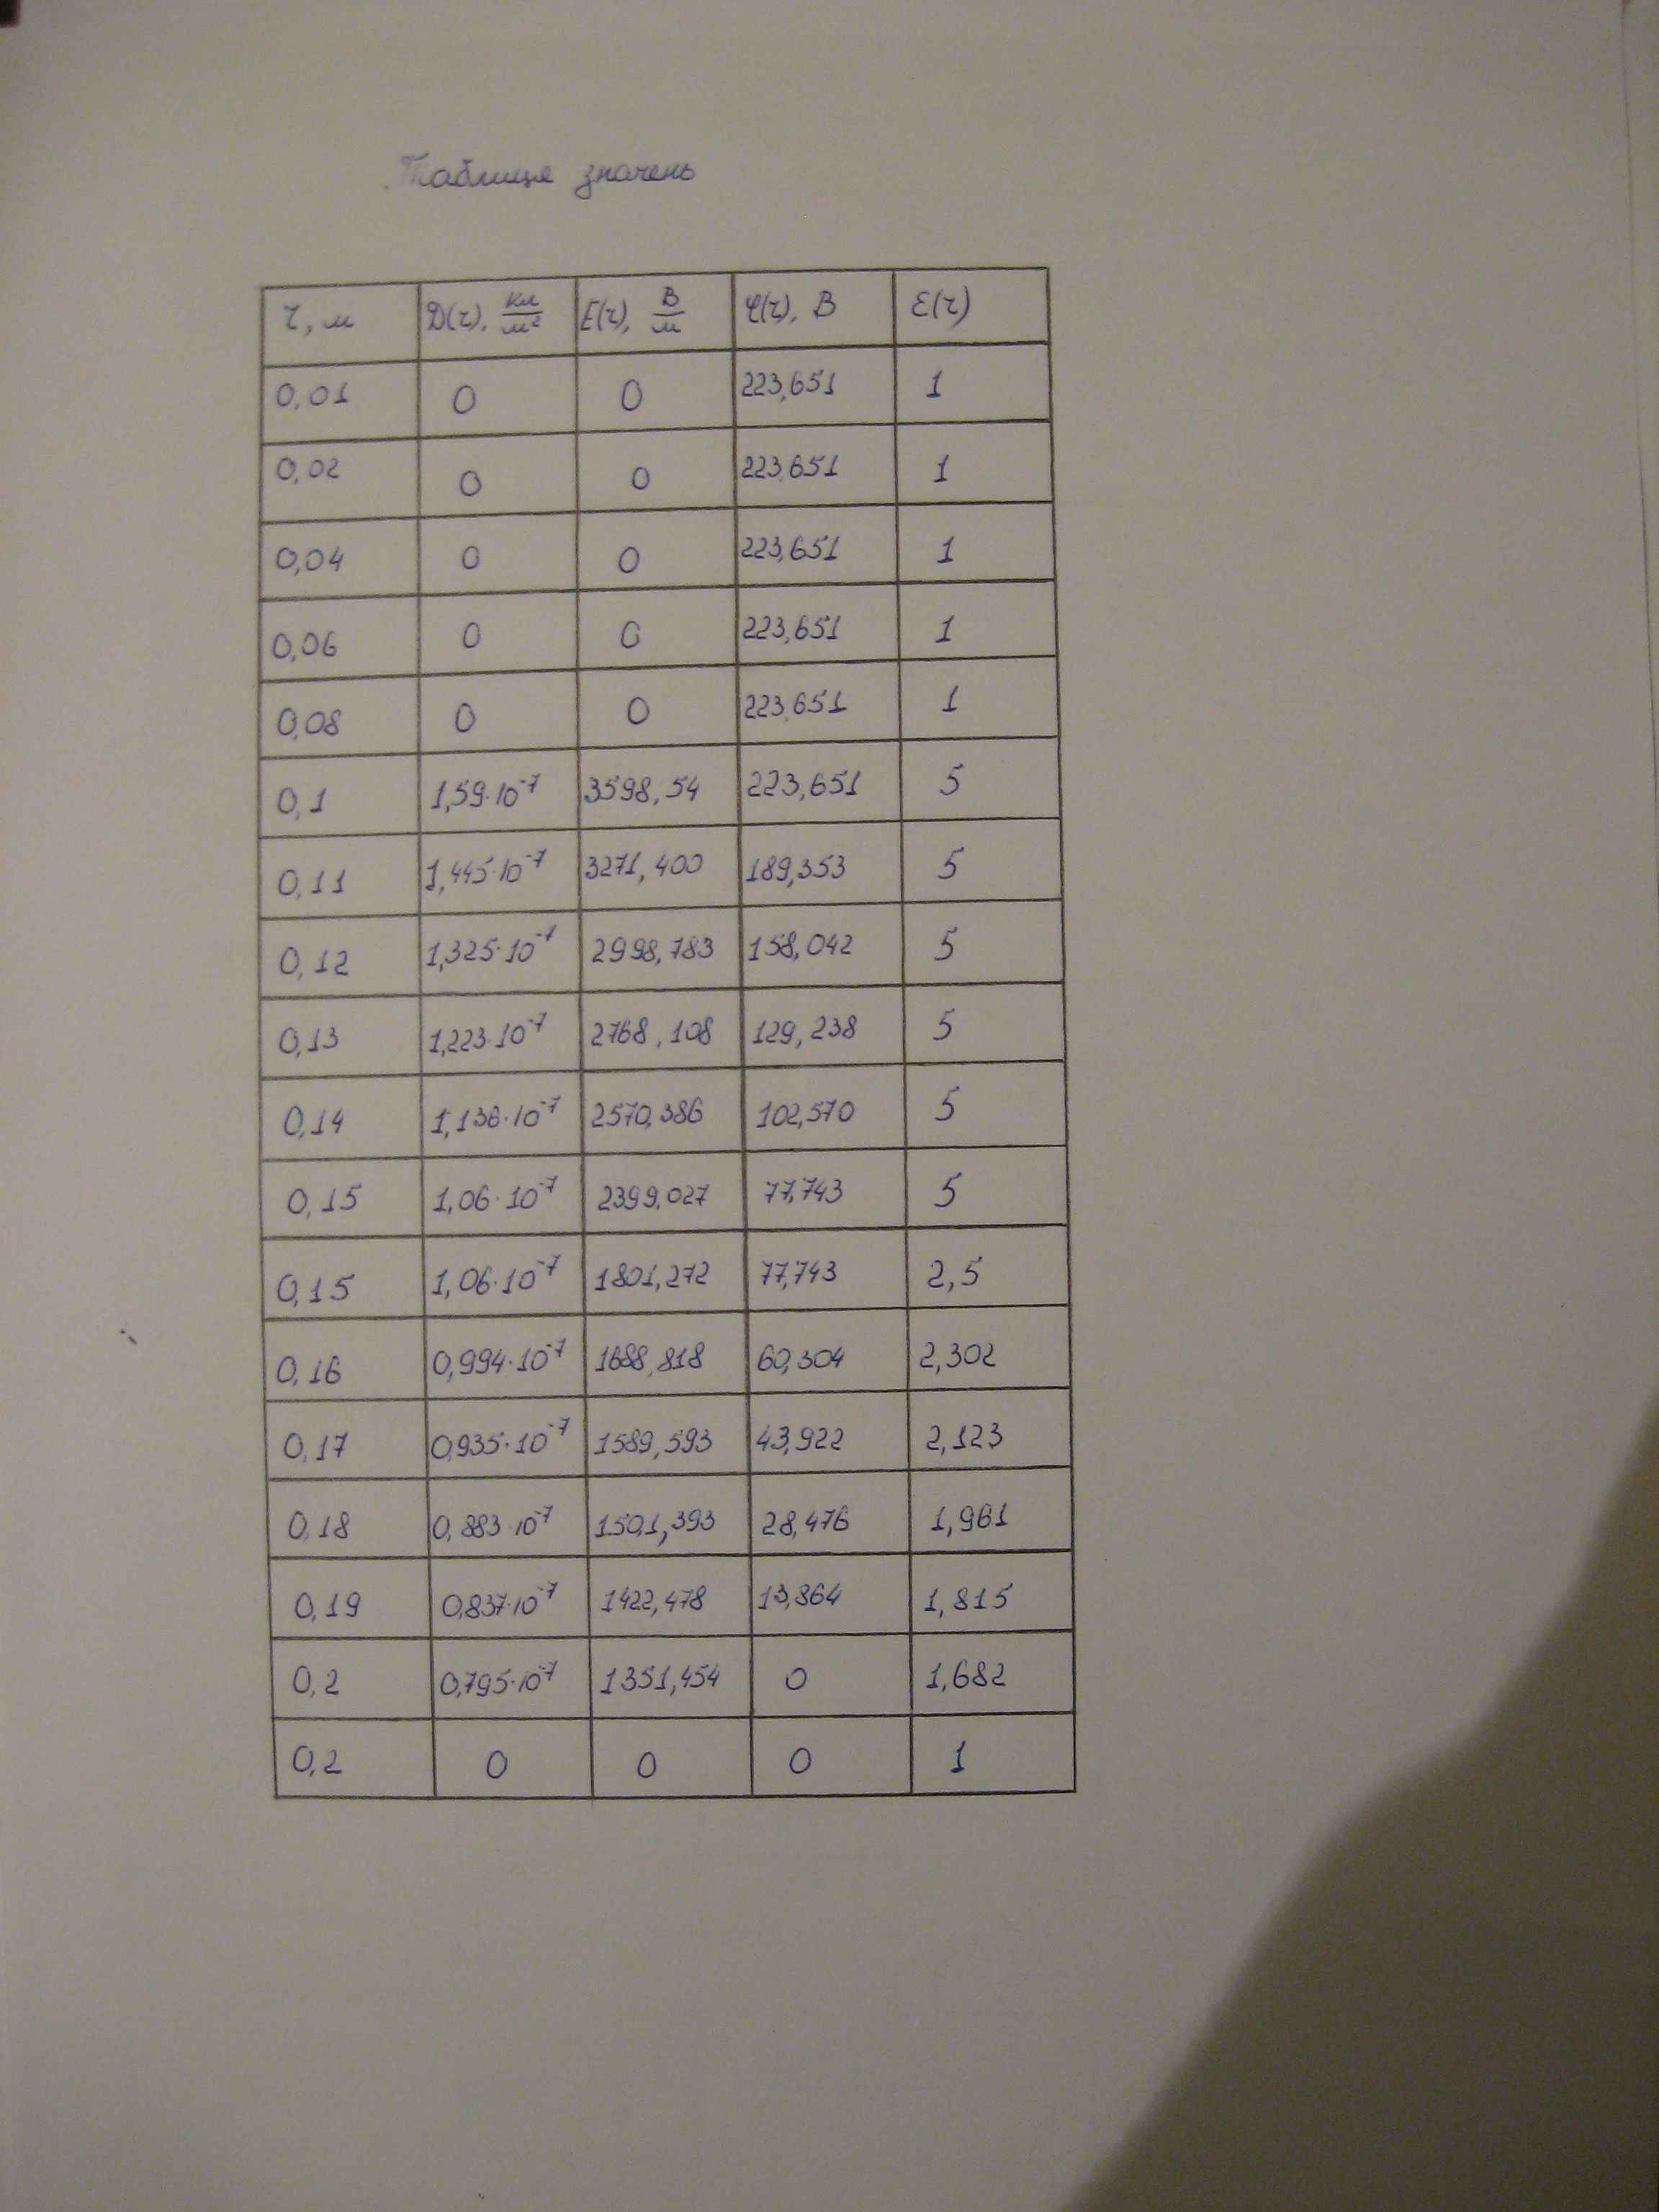 Таблиця значень
r, м Д(r), Кл/м² E(r), В/м φ(r), В ε(r)
0,01 0 0 223,651 1
0,02 0 0 223,651 1
0,04 0 0 223,651 1
0,06 0 0 223,651 1
0,08 0 0 223,651 1
0,1 1,59·10⁻⁷ 3598,54 223,651 5
0,11 1,445·10⁻⁷ 3271,400 189,353 5
0,12 1,325·10⁻⁷ 2998,783 158,042 5
0,13 1,223·10⁻⁷ 2768,108 129,238 5
0,14 1,136·10⁻⁷ 2570,386 102,570 5
0,15 1,06·10⁻⁷ 2399,027 77,743 5
0,15 1,06·10⁻⁷ 1801,272 77,743 2,5
0,16 0,994·10⁻⁷ 1688,818 60,304 2,302
0,17 0,935·10⁻⁷ 1589,593 43,922 2,123
0,18 0,883·10⁻⁷ 1501,393 28,476 1,961
0,19 0,837·10⁻⁷ 1422,478 13,864 1,815
0,2 0,795·10⁻⁷ 1351,454 0 1,682
0,2 0 0 0 1